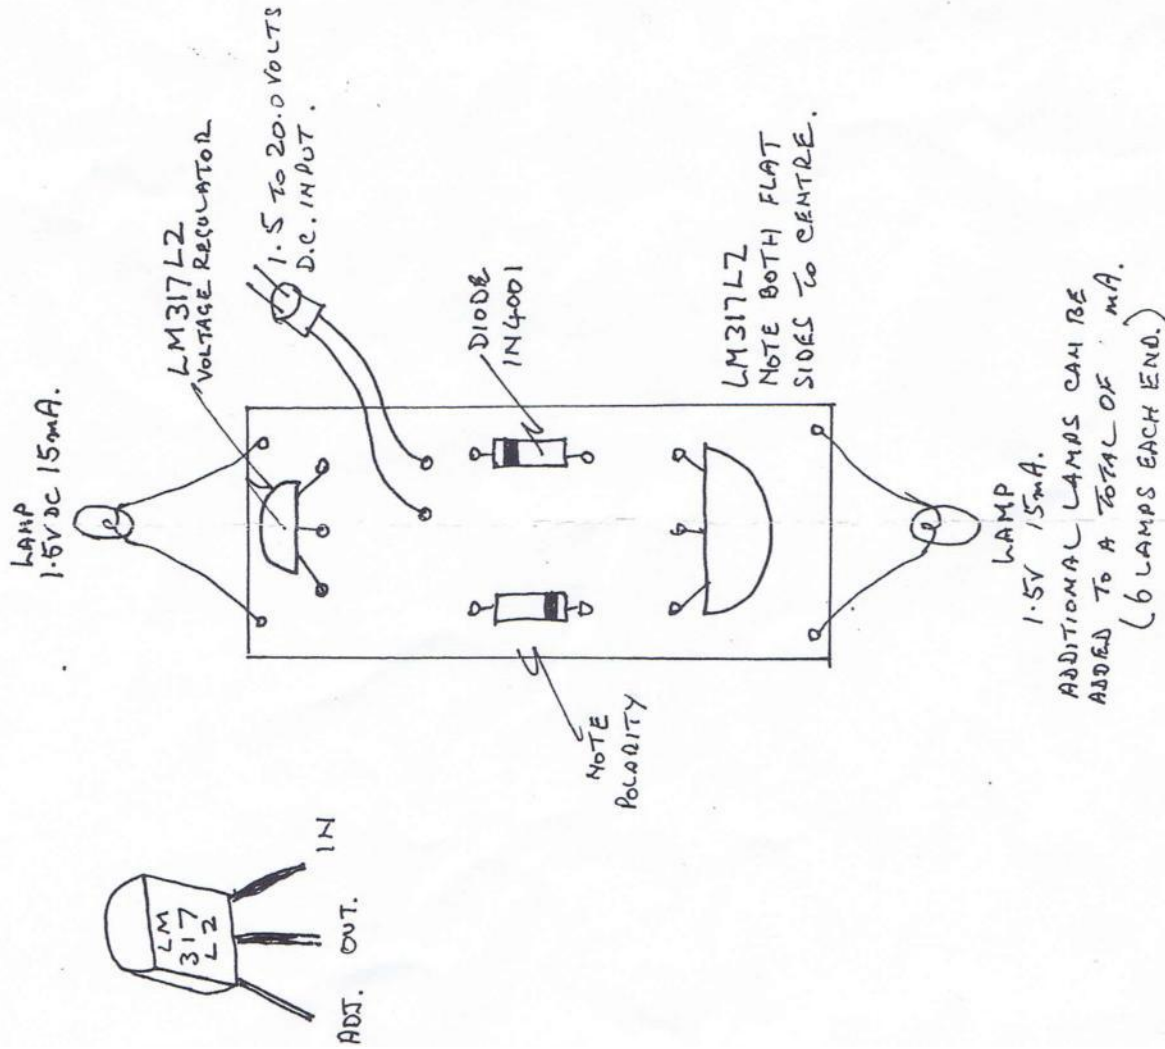 LAMP
1.5V DC 15mA.
LM317L2
VOLTAGE REGULATOR
1.5 TO 20.0 VOLTS
D.C. INPUT.
DIODE
IN4001
NOTE
POLARITY
LM317LZ
NOTE BOTH FLAT
SIDES TO CENTRE.
LAMP
1.5V 15mA.
ADDITIONAL LAMPS CAN BE
ADDED TO A TOTAL OF mA.
(6 LAMPS EACH END.)
LM
317
L2
ADJ. OUT. IN